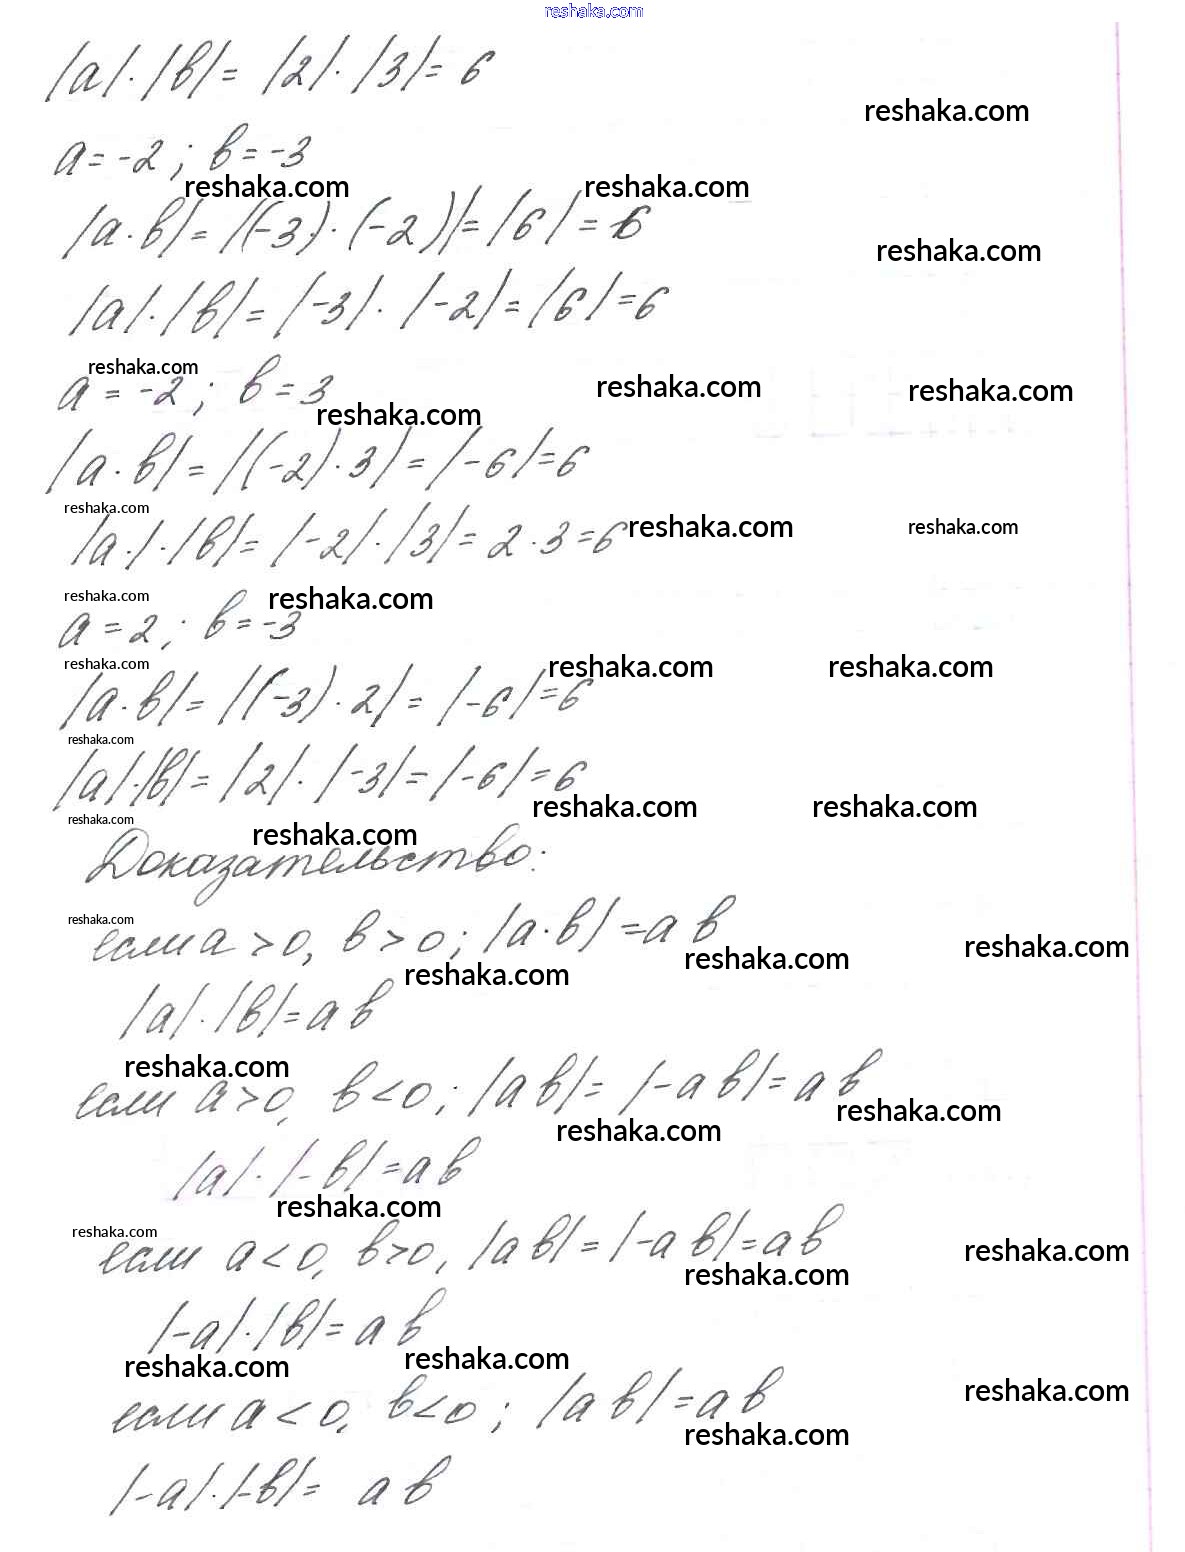 reshaka.com
|a|·|b|= |2|·|3|= 6
reshaka.com
a=-2; b=-3
reshaka.com reshaka.com
|a·b|= |(-3)·(-2)|=|6|=6
reshaka.com
|a|·|b|= |-3|·|-2|=|6|=6
reshaka.com
reshaka.com reshaka.com
a = -2; b = 3
reshaka.com
|a·b|= |(-2)·3|= |-6|=6
reshaka.com
|a·|·|b|= |-2|·|3|= 2·3=6
reshaka.com reshaka.com
reshaka.com reshaka.com
a = 2; b=-3
reshaka.com reshaka.com reshaka.com
|a·b|= |(-3)·2|= |-6|=6
reshaka.com
|a|·|b|= |2|·|-3|= |-6|=6
reshaka.com reshaka.com
reshaka.com reshaka.com
Доказательство:
reshaka.com
если a>0, b>0; |a·b|=a b
reshaka.com reshaka.com reshaka.com
|a|·|b|=a b
reshaka.com
если a>0, b<0; |a b|= |-a b|=a b
reshaka.com reshaka.com
|a|·|-b|=a b
reshaka.com
reshaka.com
если a<0, b>0, |a b|=|-a b|=a b
reshaka.com reshaka.com
|-a|·|b|= a b
reshaka.com reshaka.com
reshaka.com
если a<0, b<0; |a b|=a b
reshaka.com
|-a|·|-b|= a b